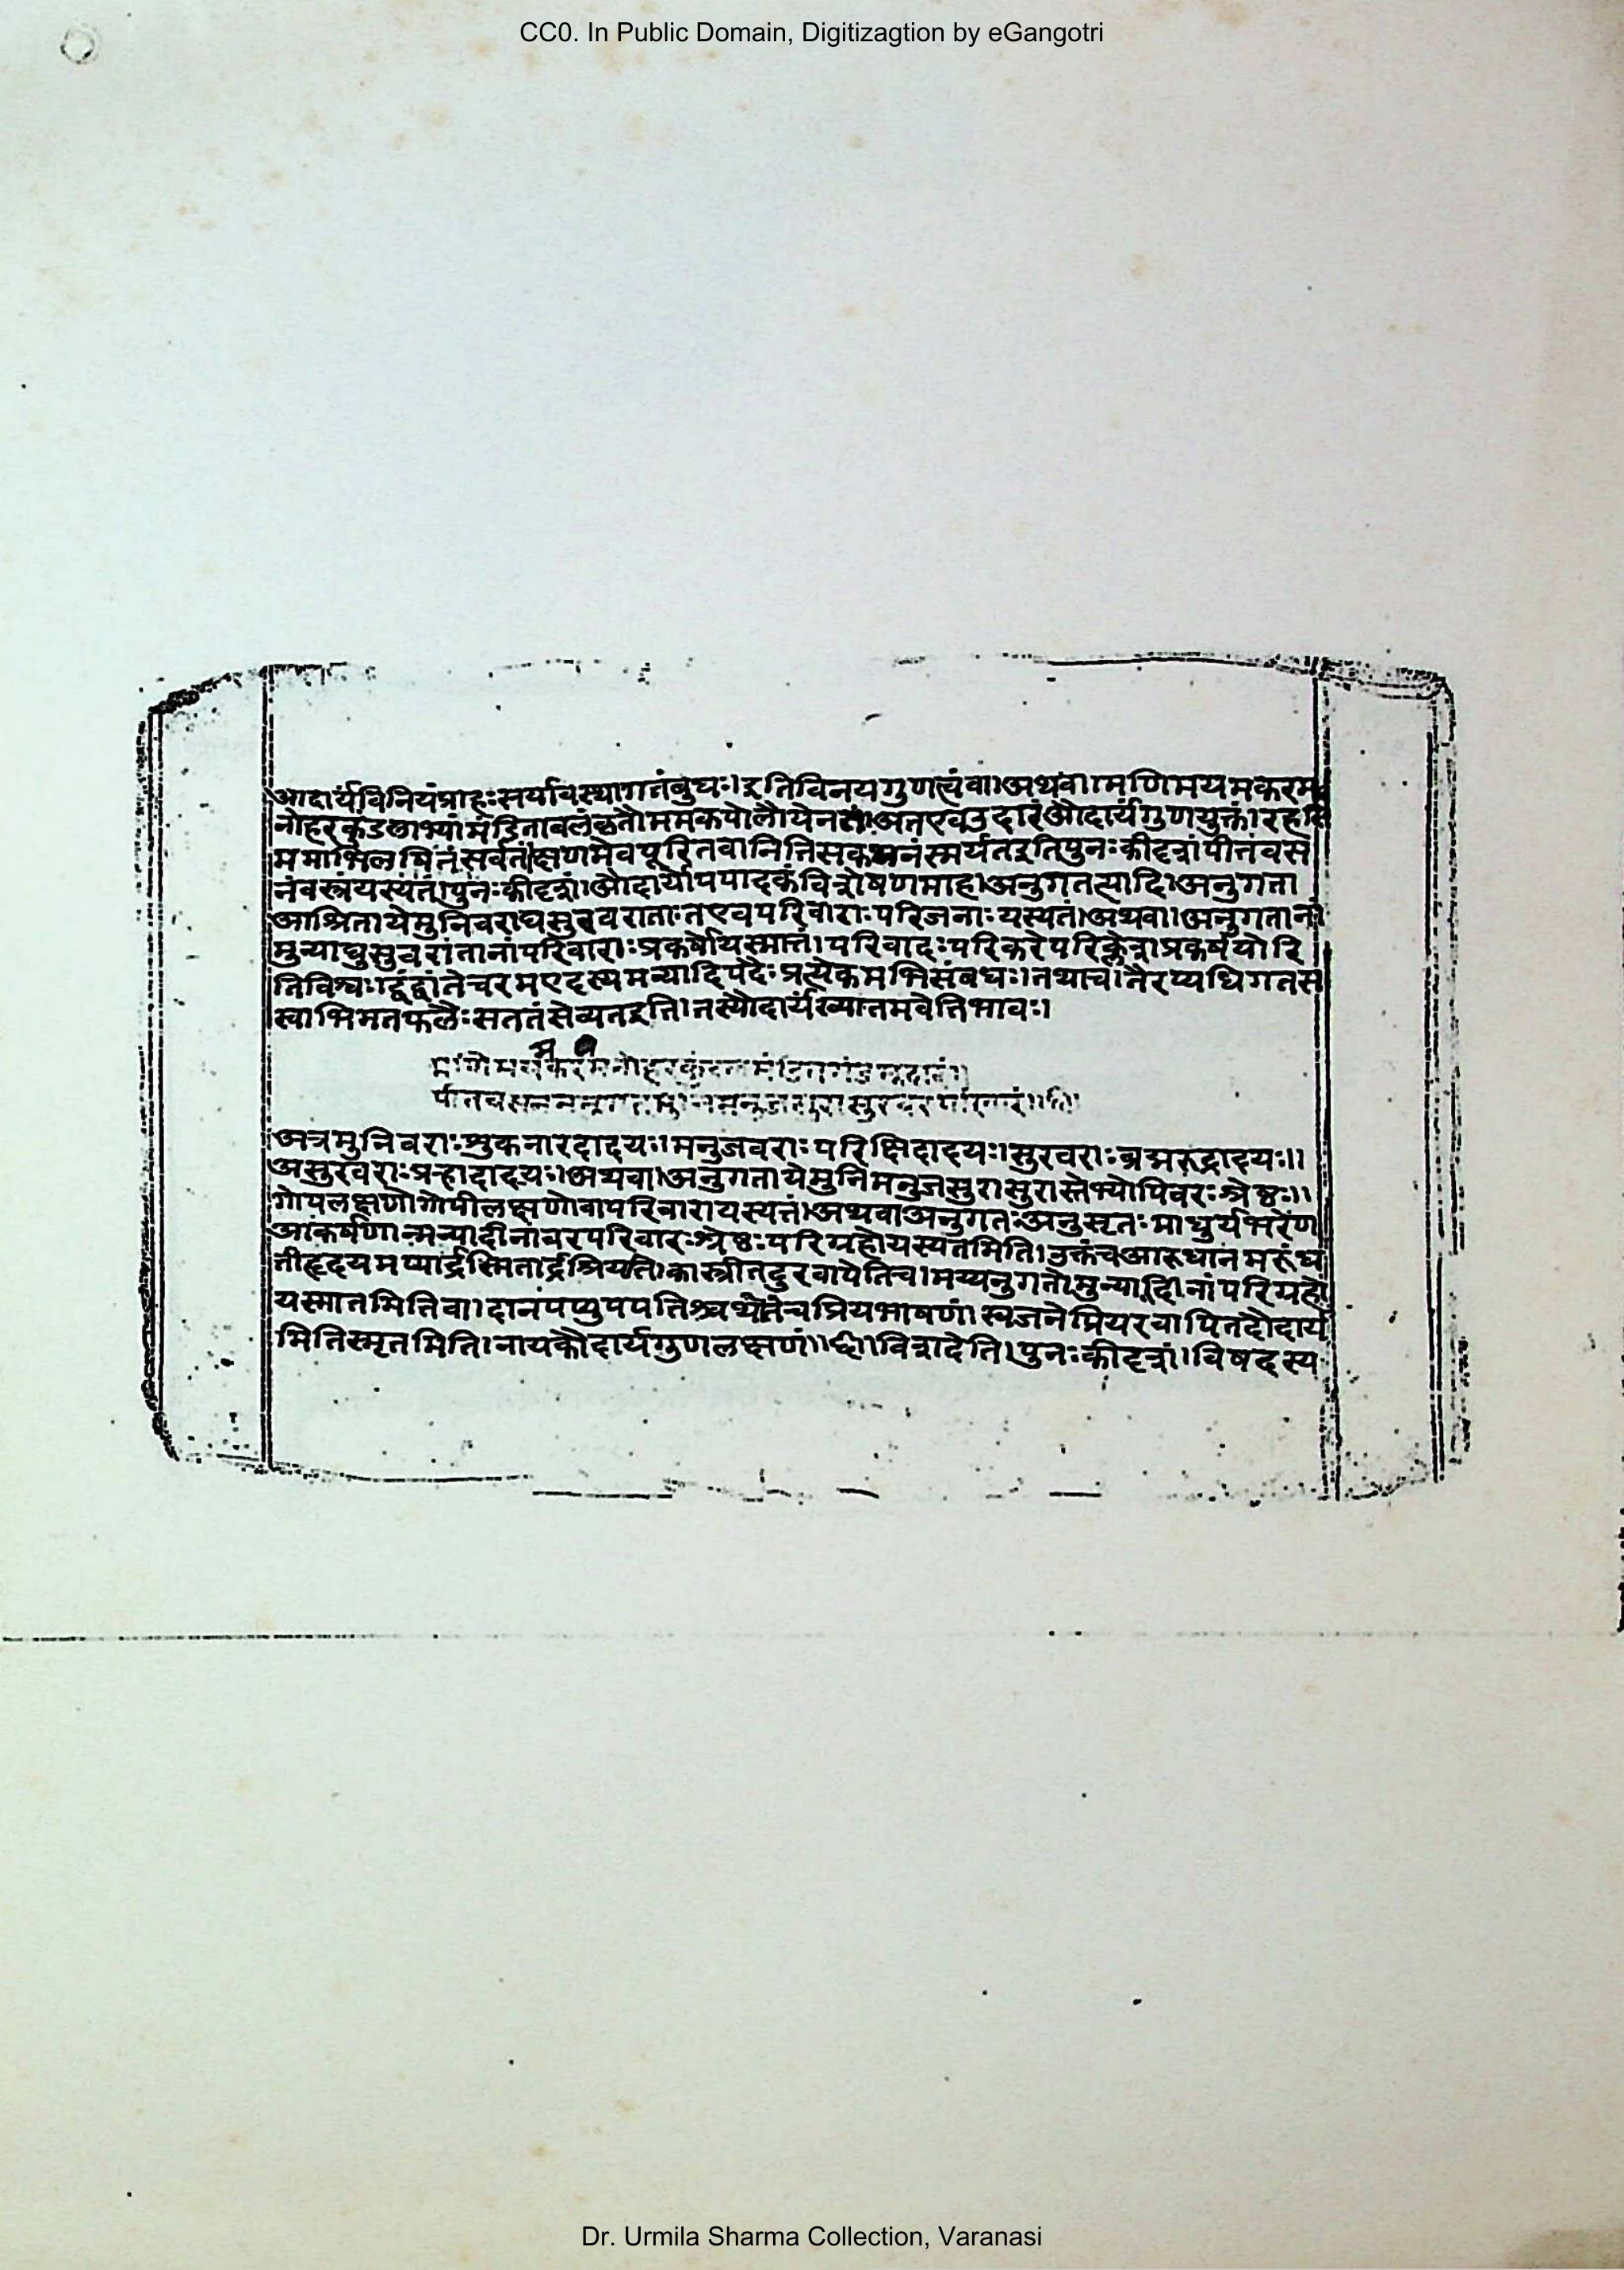 CC0. In Public Domain, Digitizagtion by eGangotri
आदार्यविनियंप्राहःसर्यावस्थागतंबुधः।इतिविनयगुणत्वंवा।अथवा।मणिमयमकरम
नोहरकुंडलाभ्यांमंडितावलंकृतौममकपोलौयेनतं।अतएवउदारंऔदार्यगुणयुक्तं।रहसि
ममाभिलषितंसर्वतंक्षणमेवपूरितवानितिसकथनंस्मर्यतइतिपुनःकीदृशं।पीतंवस
नंवस्त्रंयस्यतं।पुनःकीदृशं।औदार्योपपादकंविशेषणमाह।अनुगतत्यादि।अनुगता
आश्रितायेमुनिवराद्यसुरवराताःतएवपरिवाराःपरिजनाःयस्यतं।अथवा।अनुगतानां
मुन्याद्यसुवरांतानांपरिवाराःप्रकर्षोयस्मात्तं।परिवादःपरिकरेपरिक्लेशप्रकर्षयोरि
तिविश्वः।द्वंद्वांतेचरमएदस्यमन्यादिपदैःप्रत्येकमभिसंबधः।तथाच।तैरप्यधिगतस
स्वाभिमतफलैःसततंसेव्यतइति।तस्यौदार्यंख्यातमवेतिभावः।
पीतवसनमनुगतमुनिमनुजसुरासुरवरपरिवारं।।६।।
अत्रमुनिवराःशुकनारदादयः।मनुजवराःपरिक्षिदादयः।सुरवराःब्रह्मरुद्रादयः।।
असुरवराःप्रन्हादादयः।अथवा।अनुगतायेमुनिमनुजसुरासुरास्तेभ्योपिवरःश्रेष्ठः।।
गोपलक्षणोगोपीलक्षणोवापरिवारायस्यत्तं।अथवाअनुगतःअनुसृतःमाधुर्यभरेण
आकर्षणान्मन्यादीनांवरपरिवारःश्रेष्ठःपरिग्रहोयस्यतमिति।उक्तंचआरुधानमरुंध
तीहृदयमप्यार्द्रस्मितार्द्रश्रियति।कास्त्रीतदुरवापेतिच।मय्यनुगतो।मुन्यादीनांपरिग्रहो
यस्मातमितिवा।दानंपप्युपपत्तिश्चथैतंचप्रियभाषणं।स्वजनेप्रियरवापितदौदार्य
मितिस्मृतमिति।नायकौदार्यगुणलक्षणं।।६।।विशदेति।पुनःकीदृशं।विषदस्य
Dr. Urmila Sharma Collection, Varanasi